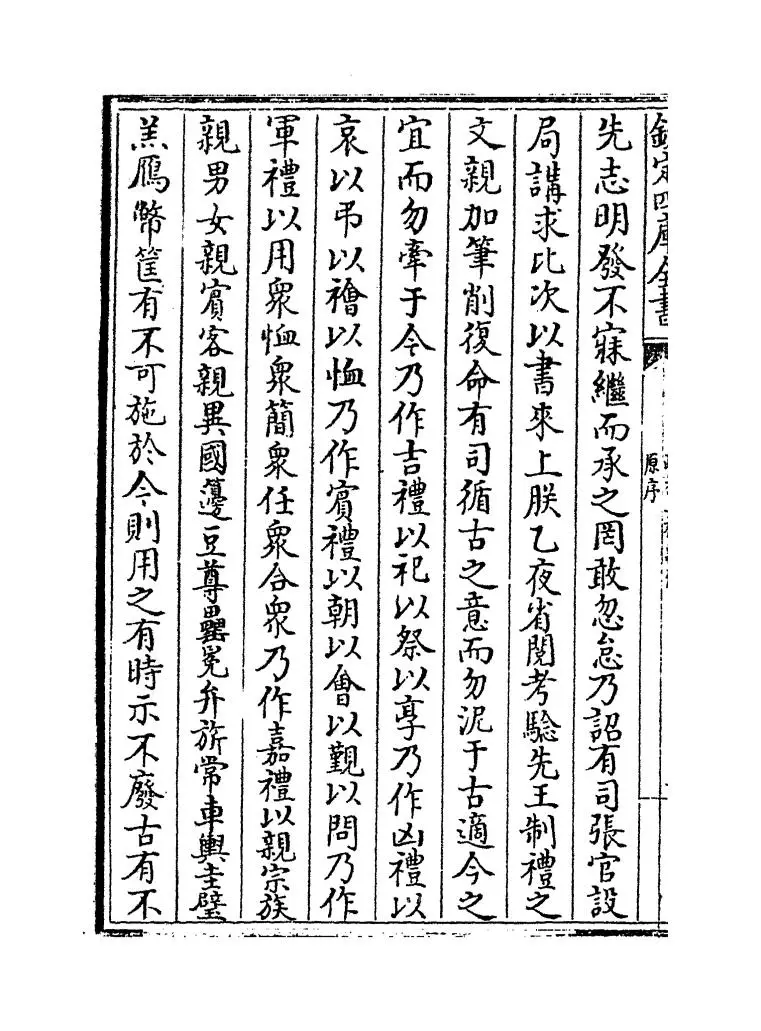 欽定四庫全書
原序
先志明發不寐繼而承之罔敢忽怠乃詔有司張官設
局講求比次以書來上朕乙夜省閱考驗先王制禮之
文親加筆削復命有司循古之意而勿泥于古適今之
宜而勿牽于今乃作吉禮以祀以祭以享乃作凶禮以
哀以弔以禬以恤乃作賓禮以朝以會以覲以問乃作
軍禮以用衆恤衆簡衆任衆合衆乃作嘉禮以親宗族
親男女親賓客親異國籩豆尊罍冕弁旂常車輿圭璧
羔鴈幣篚有不可施於今則用之有時示不廢古有不